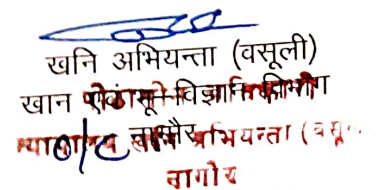 खनि अभियन्ता (वसूली)
खान एवं भू-विज्ञान विभाग
O/C नागौर
खनि अभियन्ता (वसू
नागौर